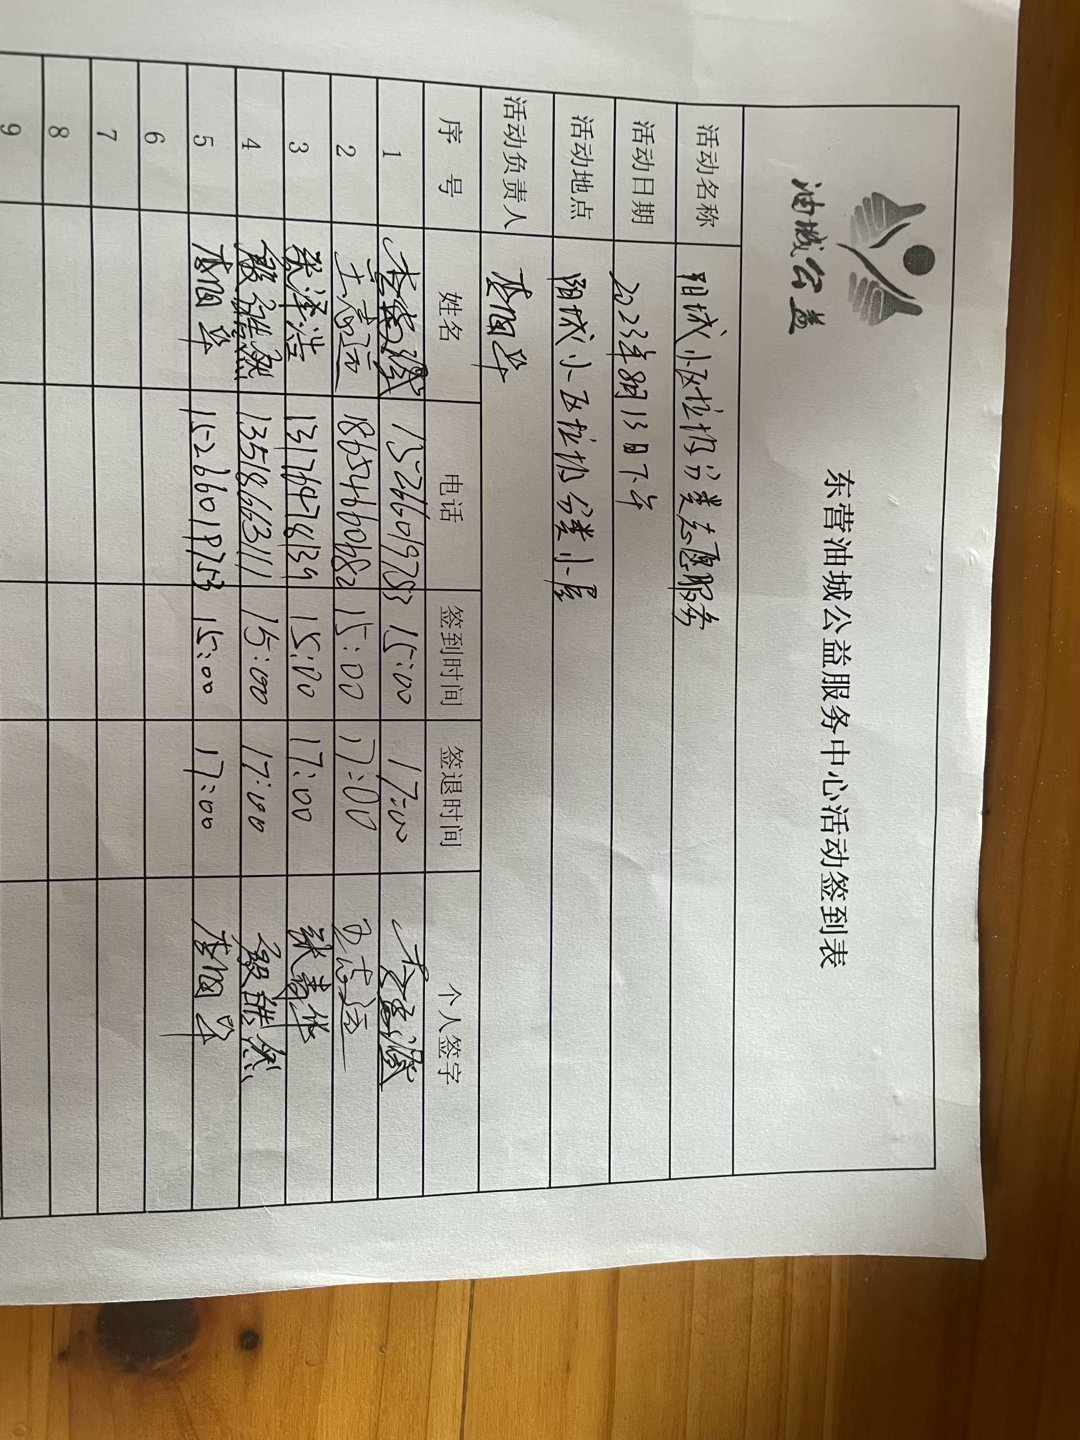 油城公益
东营油城公益服务中心活动签到表
活动名称 阳城小区垃圾分类志愿服务
活动日期 2023年8月13日下午
活动地点 阳城小区垃圾分类小屋
活动负责人
序号 姓名 电话 签到时间 签退时间 个人签字
1 15266019753 15:00 17:00
2 王志远 18654660682 15:00 17:00 王志远
3 张泽浩 13176478139 15:00 17:00 张春华
4 殷皓然 13518663111 15:00 17:00 殷皓然
5 15266019753 15:00 17:00
6
7
8
9